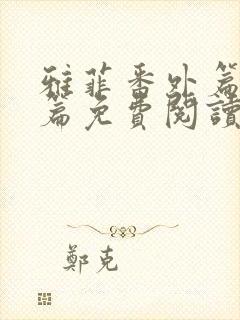 雅菲番外篇
篇免費閱讀
鄭克